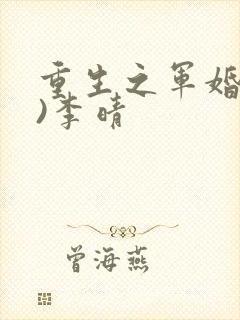 重生之军婚
)李晴
曾海燕